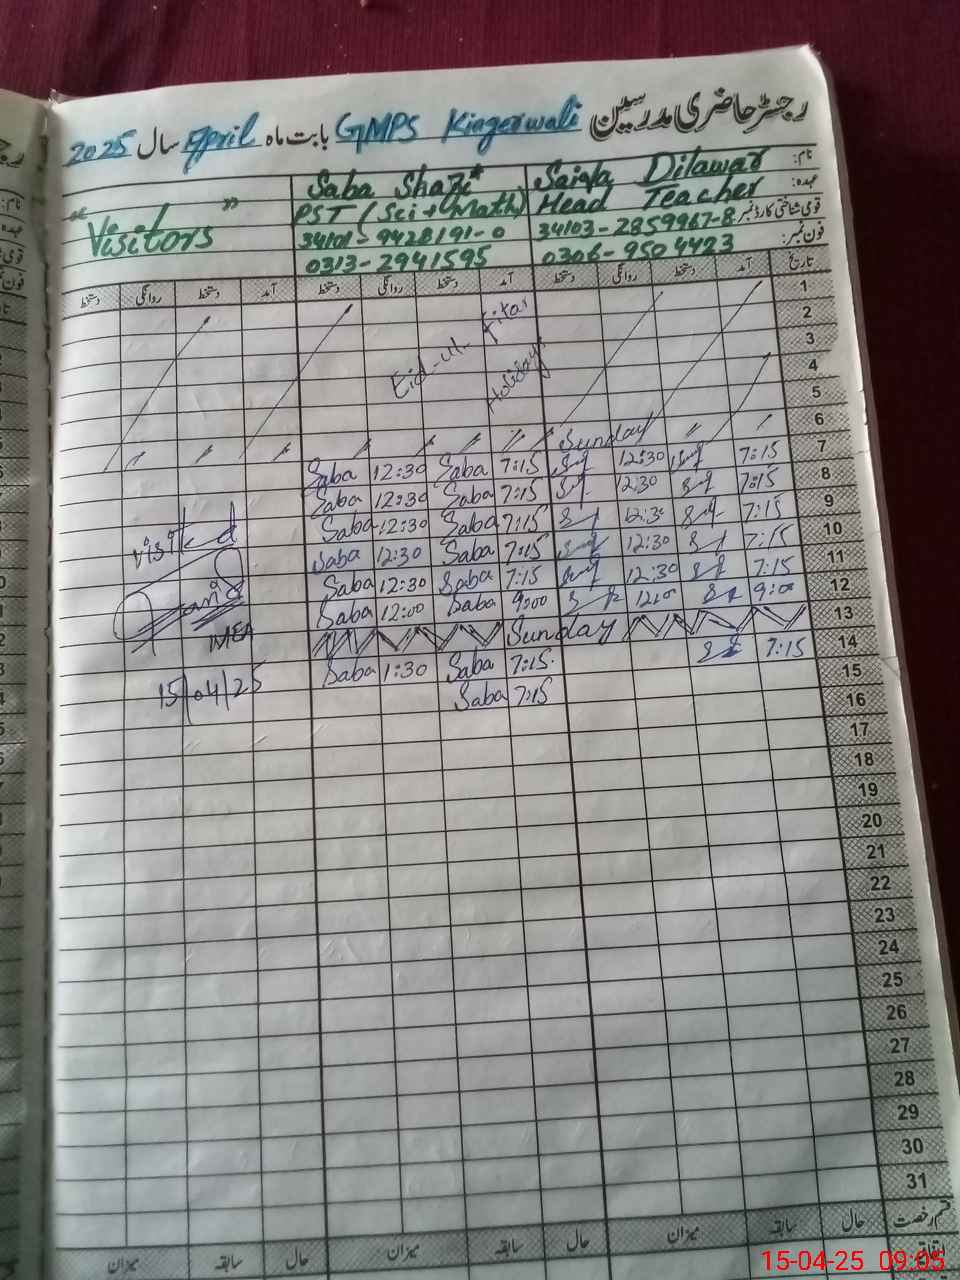 رجسٹر حاضری مدرسین GMPS Kingerwali بابت ماہ April سال 2025
نام: Saiqa Dilawar Saba Shafi
عہدہ: Head Teacher PST (Sci + Math) "Visitors"
قومی شناختی کارڈ نمبر: 34103-2859967-8 34101-9428191-0
فون نمبر: 0306-9504423 0313-2941595
تاریخ آمد دستخط روانگی دستخط آمد دستخط روانگی دستخط آمد دستخط روانگی دستخط
1
2 Eid-ul-Fitar
3
4 Holidays
5
6 Sunday
7 7:15 12:30 7:15 Saba 12:30 Saba
8 7:15 12:30 7:15 Saba 12:30 Saba
9 7:15 12:30 7:15 Saba 12:30 Saba
10 7:15 12:30 7:15 Saba 12:30 Saba visited
11 7:15 12:30 7:15 Saba 12:30 Saba
12 9:00 12:00 9:00 Saba 12:00 Saba
13 Sunday MEA
14 7:15 7:15 Saba 1:30 Saba
15 7:15 Saba 15/04/25
16
17
18
19
20
21
22
23
24
25
26
27
28
29
30
31
قسم رخصت حال سابقہ میزان حال سابقہ میزان حال سابقہ میزان
اتفاقیہ
15-04-25 09:05